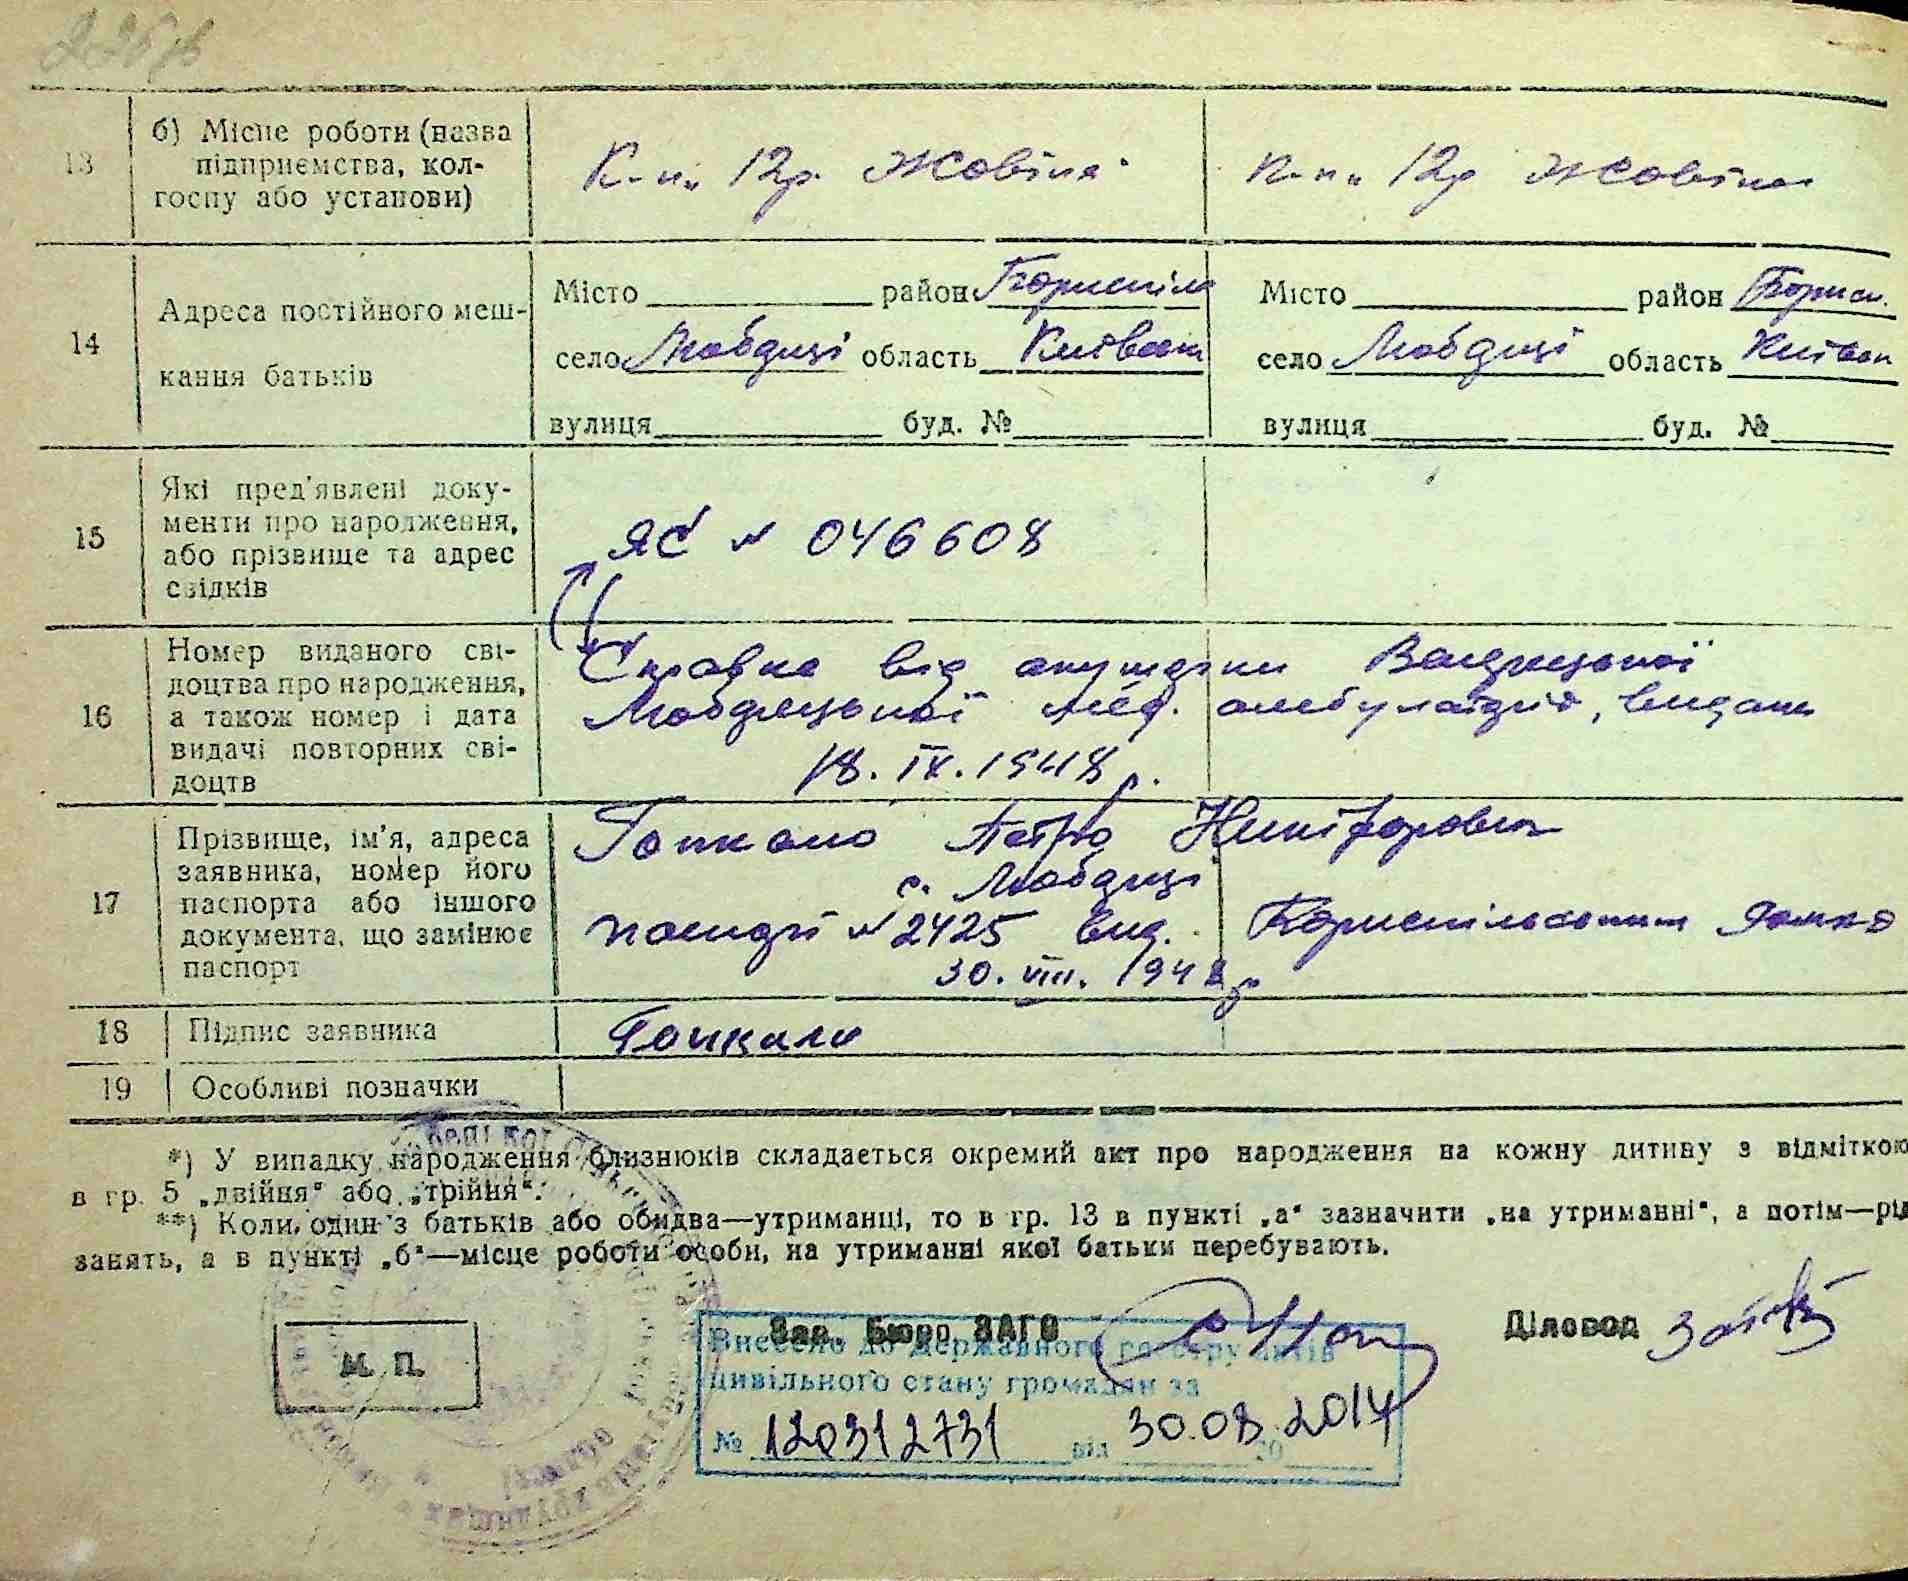 13
б) Місце роботи (назва
підприємства, кол-
госпу або установи)
К-п „ 12р. Жовтня
К-п „ 12р Жовтня
14
Адреса постійного меш-
кання батьків
Місто район Бориспіль
село Любарці область Київськ
вулиця буд. №
Місто район Борисп.
село Любарці область Київськ
вулиця буд. №
15
Які пред'явлені доку-
менти про народження,
або прізвище та адрес
свідків
ЯС № 046608
16
Номер виданого сві-
доцтва про народження,
а також номер і дата
видачі повторних сві-
доцтв
Справка від акушерки
Любарецької мед. амбулаторії, видана
18. IX. 1948 р.
17
Прізвище, ім'я, адреса
заявника, номер його
паспорта або іншого
документа, що замінює
паспорт
Гопкало Петро Никифорович
с. Любарці
№ 2425 вид. Бориспільським
30. VIII. 1948 р
18
Підпис заявника
Гопкало
19
Особливі позначки
*) У випадку народження близнюків складається окремий акт про народження на кожну дитину з відміткою
в гр. 5 „двійня“ або „трійня“.
**) Коли один з батьків або обидва—утриманці, то в гр. 13 в пункті „а“ зазначити „на утриманні“, а потім—рід
занять, а в пункті „б“—місце роботи особи, на утриманні якої батьки перебувають.
М. П.
Зав. Бюро ЗАГС
Діловод
Внесено до Державного реєстру актів
цивільного стану громадян за
№ 120312731 від 30.08.2014
20